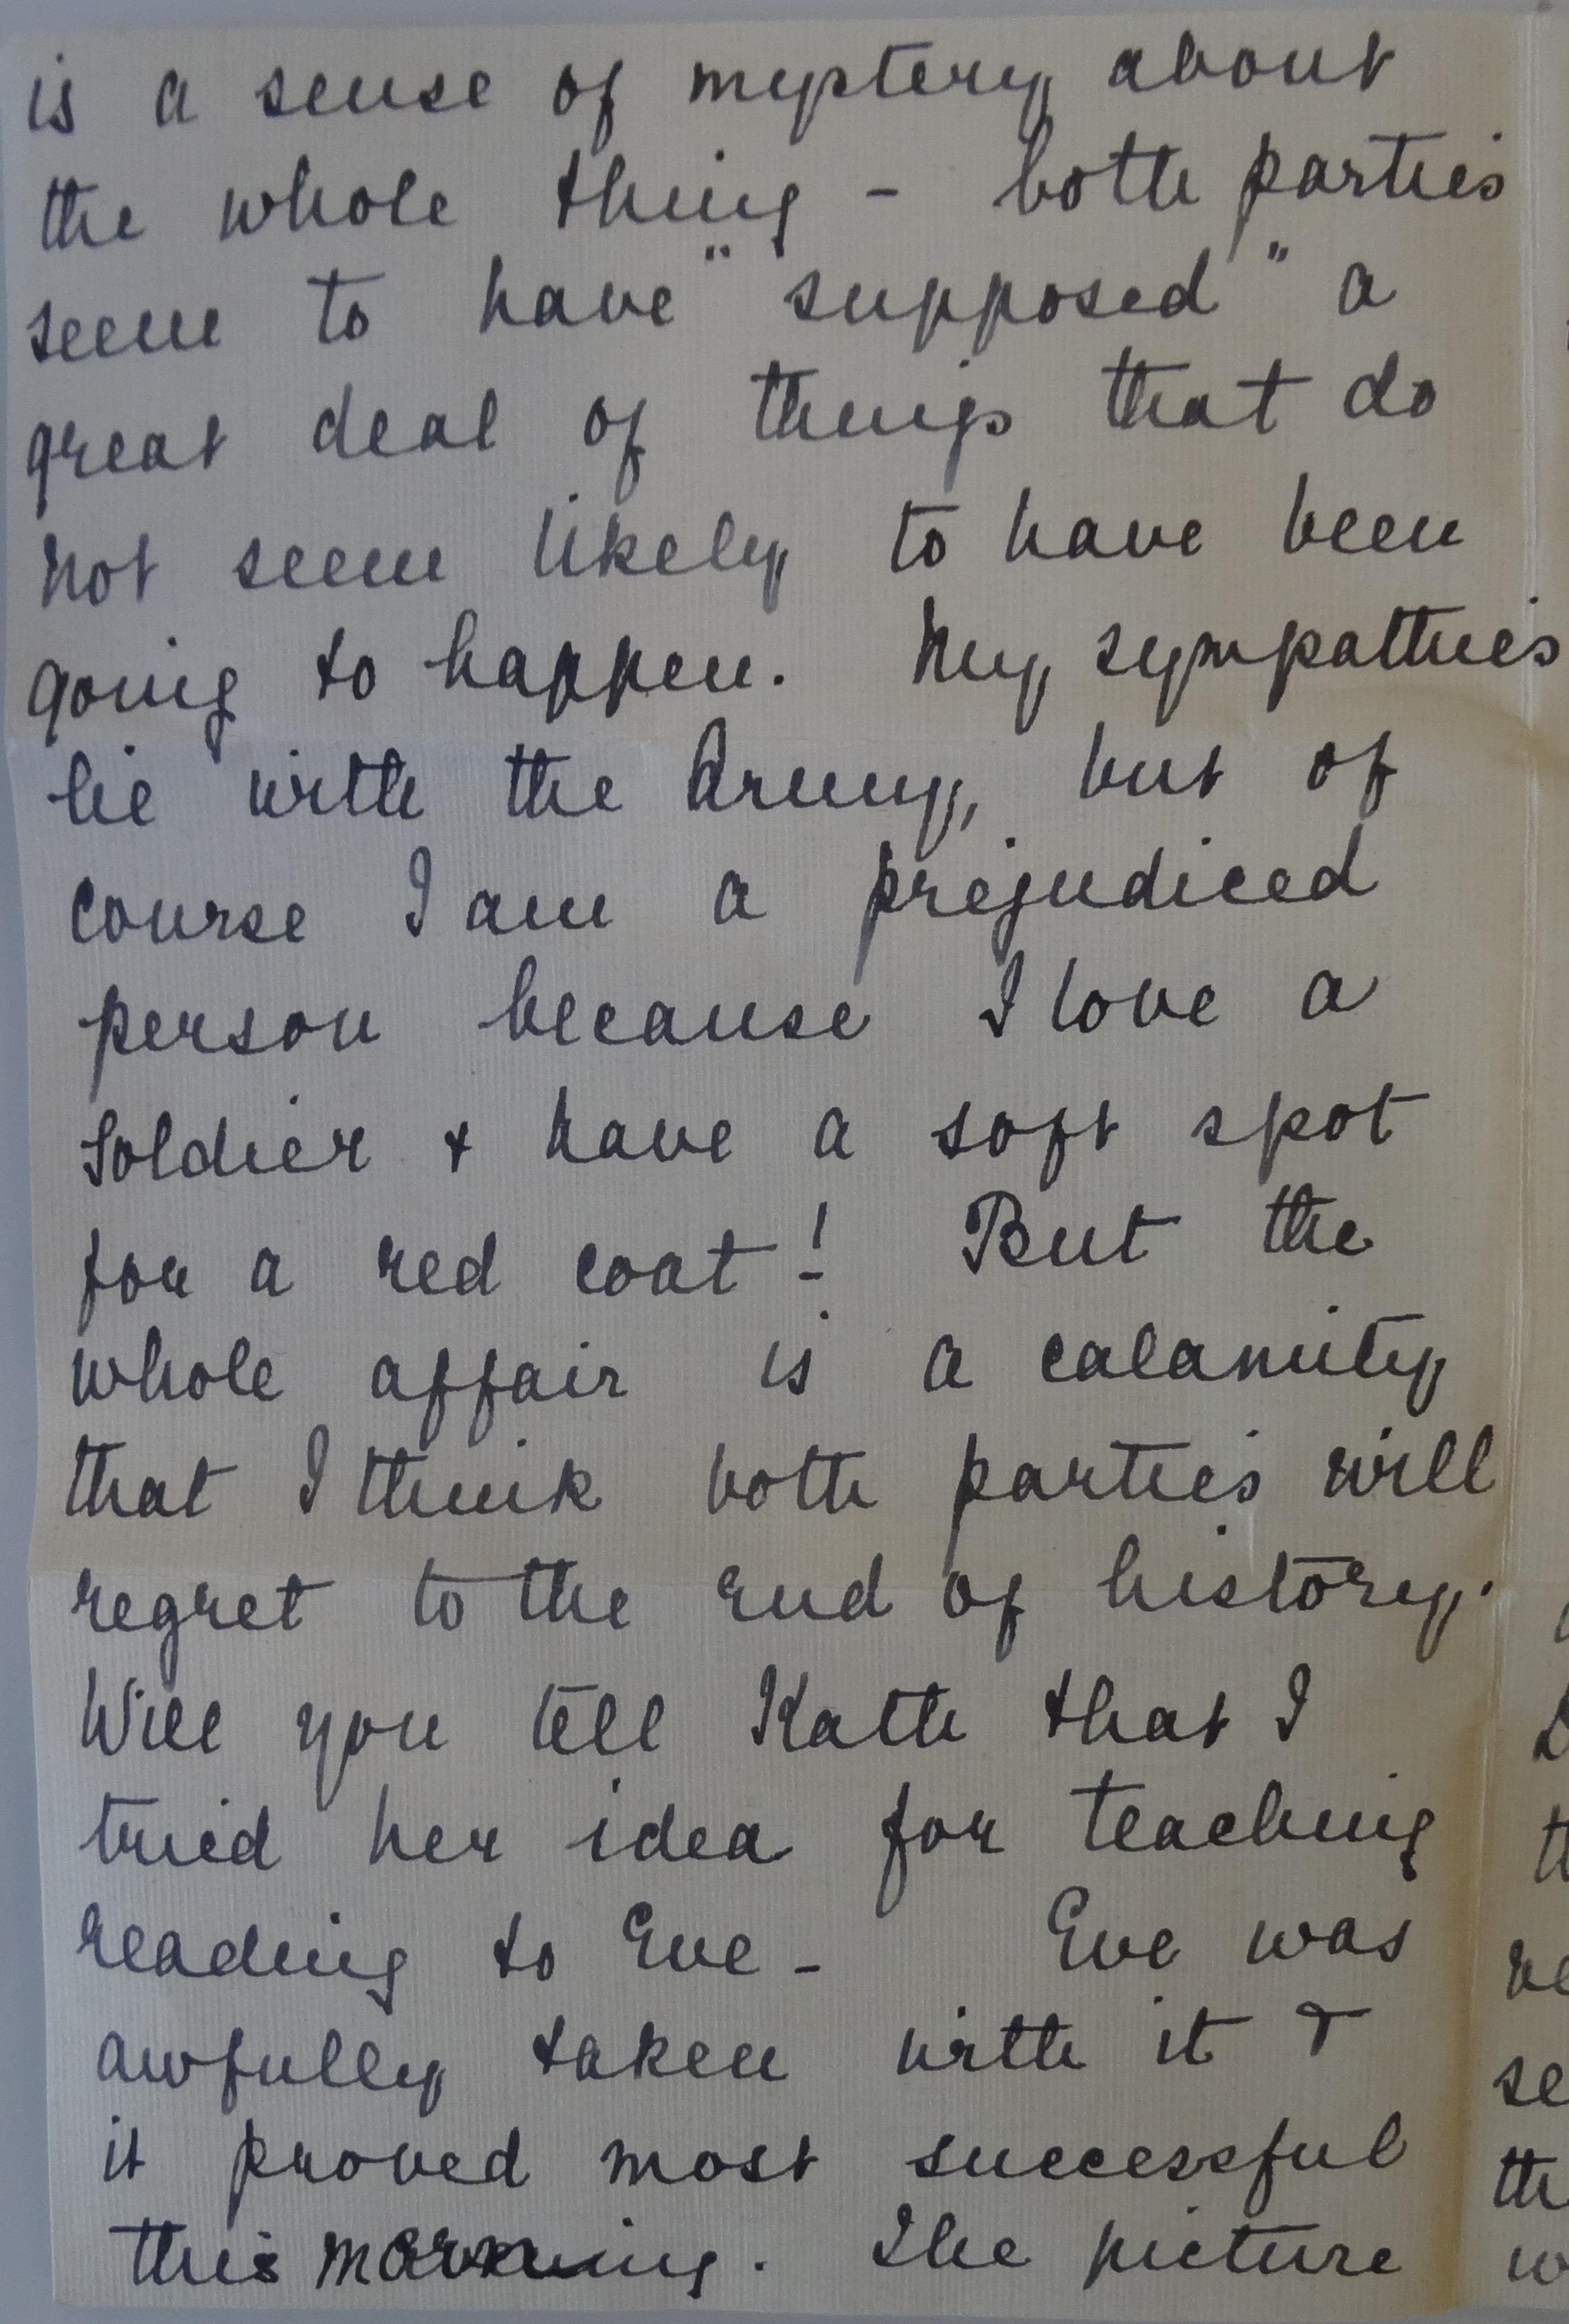 is a sense of mystery about
the whole thing - both parties
seem to have "supposed" a
great deal of things that do
not seem likely to have been
going to happen. My sympathies
lie with the Army, but of
course I am a prejudiced
person because I love a
Soldier & have a soft spot
for a red coat! - But the
whole affair is a calamity
that I think both parties will
regret to the end of history.
Will you tell Kath that I
tried her idea for teaching
reading to Eve - Eve was
awfully taken with it &
it proved most successful
this morning. The picture